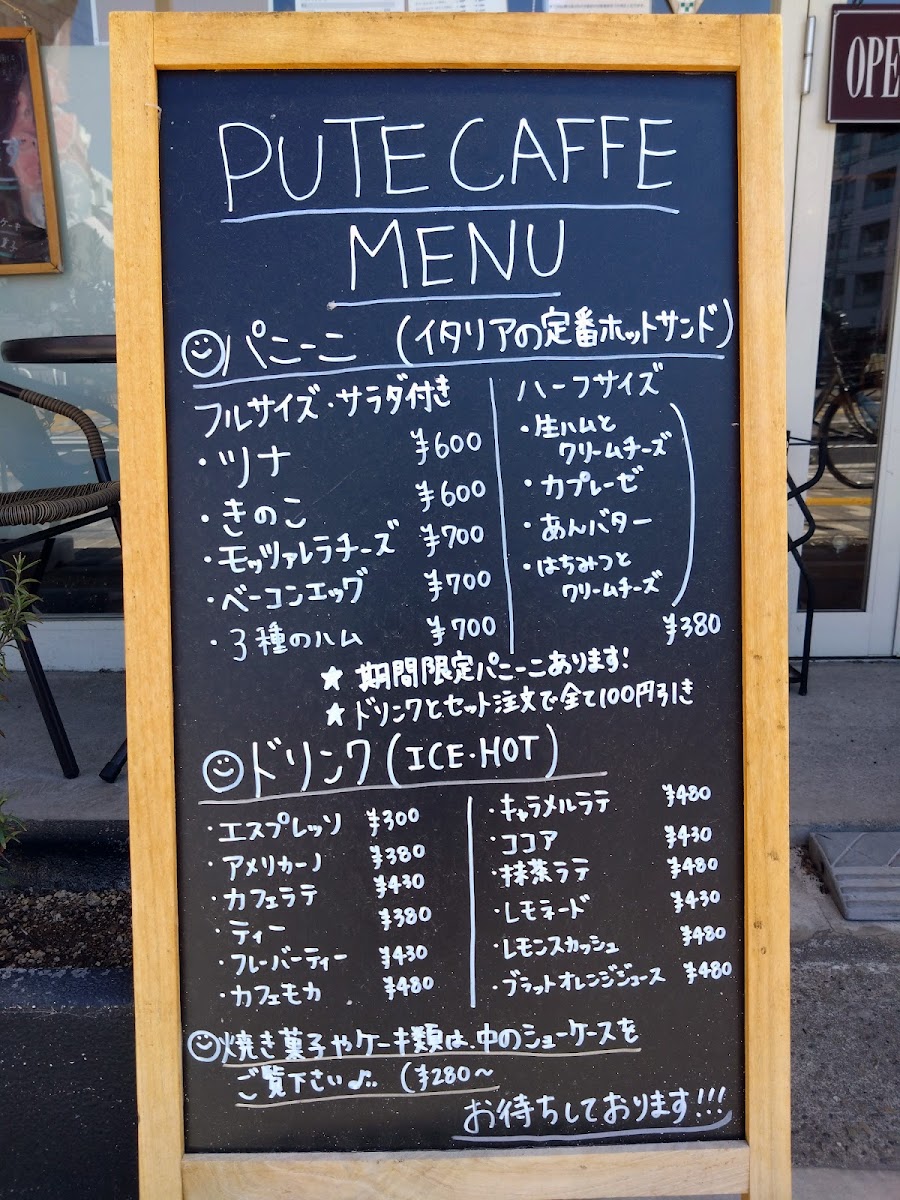 PUTE CAFFE
MENU
パニーニ (イタリアの定番ホットサンド)
フルサイズ・サラダ付き
・ツナ ¥600
・きのこ ¥600
・モッツァレラチーズ ¥700
・ベーコンエッグ ¥700
・3種のハム ¥700
ハーフサイズ
・生ハムと
クリームチーズ
・カプレーゼ
・あんバター
・はちみつと
クリームチーズ
¥380
★ 期間限定パニーニあります!
★ ドリンクとセット注文で全て100円引き
ドリンク (ICE・HOT)
・エスプレッソ ¥300
・アメリカーノ ¥380
・カフェラテ ¥430
・ティー ¥380
・フレーバーティー ¥430
・カフェモカ ¥480
・キャラメルラテ ¥480
・ココア ¥430
・抹茶ラテ ¥480
・レモネード ¥430
・レモンスカッシュ ¥480
・ブラットオレンジジュース ¥480
焼き菓子やケーキ類は、中のショーケースを
ご覧下さい♪.. (¥280〜
お待ちしております!!!
OPE